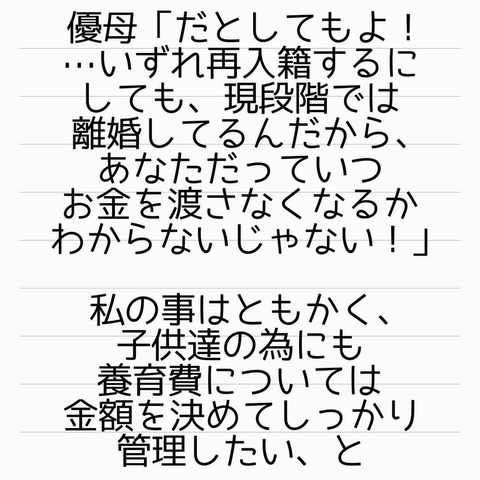 優母「だとしてもよ！
…いずれ再入籍するに
しても、現段階では
離婚してるんだから、
あなただっていつ
お金を渡さなくなるか
わからないじゃない！」
私の事はともかく、
子供達の為にも
養育費については
金額を決めてしっかり
管理したい、と